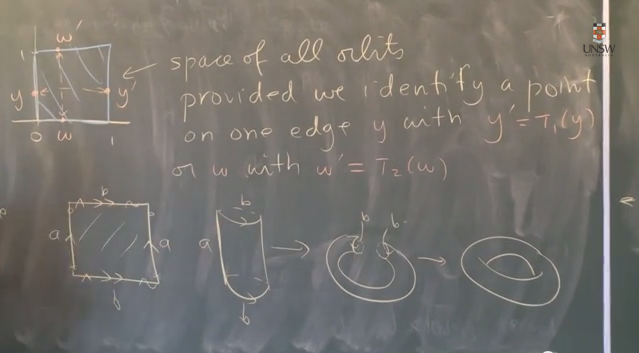 w'
1
y
y'
0
w
1
space of all orbits
provided we identify a point
on one edge y with y' = T₁(y)
or w with w' = T₂(w)
b
a
a
b
b
a
b
b
b
UNSW